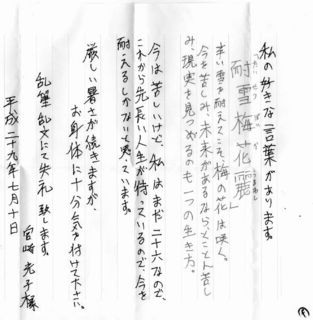 私の好きな言葉があります。
「耐雪梅花麗」
たいせつばいかうるわし
辛い雪を耐えてこそ梅の花は咲く。
今を苦しみ、未来があるなら、とことん苦し
み、現実を見つめるのも一つの生き方。
今は苦しいけど、私はまだ二十六なので、
これから先長い人生が待っているので、今を
耐えるしかないと実います。
厳しい暑さが続きますが、
お身体に十分気を付けて下さい。
乱筆乱文にて失礼致します。
平成二十九年七月十日
宮崎光子様